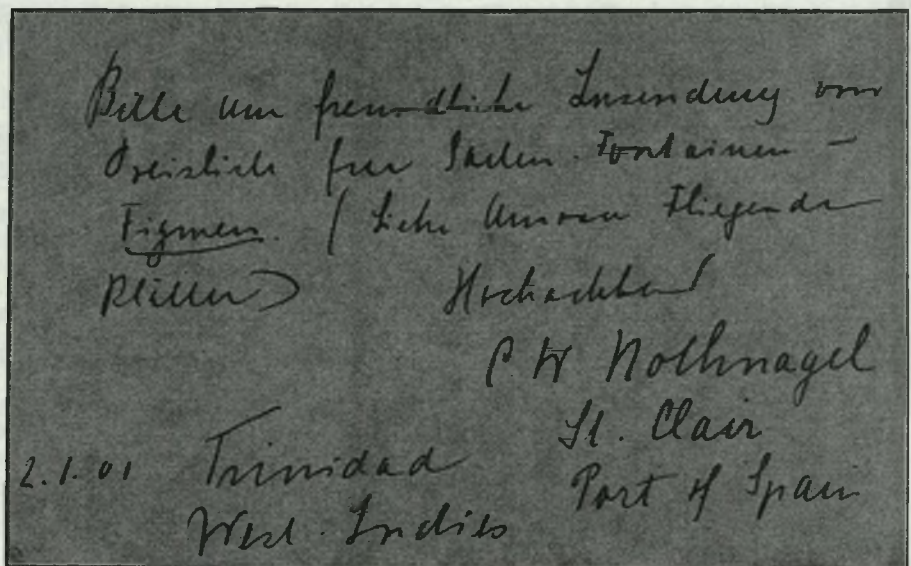 Bitte um freundliche Zusendung von
Preisliste für Garten-Fontainen-
Figuren. (Siehe Annonce Fliegende
Blätter)
Hochachtend
C. W. Nothnagel
St. Clair
Port of Spain
2.1.01 Trinidad
West-Indies